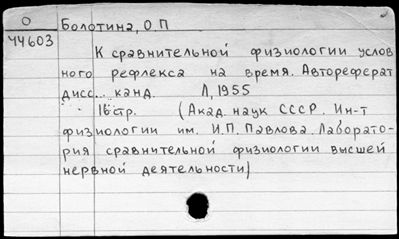 О Болотина, О.П
44603
К сравнительной физиологии услов
ного рефлекса на время. Автореферат
дисс... канд. Л, 1955
16стр. (Акад. наук СССР. Ин-т
физиологии им. И.П. Павлова. Лаборато-
рия сравнительной физиологии высшей
нервной деятельности)